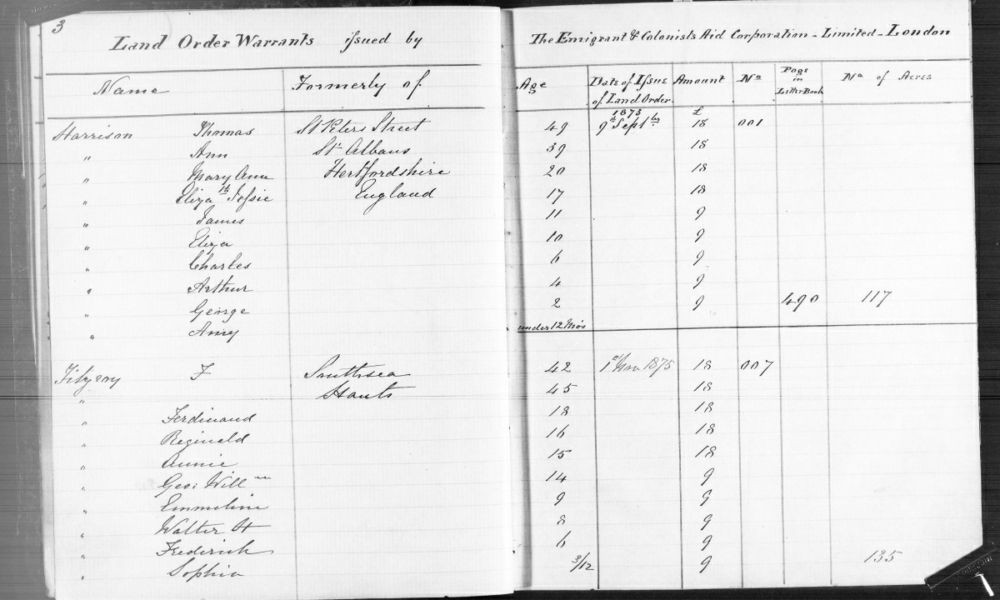 3
Land Order Warrants issued by The Emigrant & Colonists Aid Corporation - Limited - London
Name Formerly of Age Date of Issue of Land Order Amount No Page in Letter Book No of Acres
1873 £
Harrison Thomas St Peters Street 49 9th Septbr 18 001
" Ann St Albans 39 18
" Mary Ann Hertfordshire 20 18
" Elizath Jessie England 17 18
" James 11 9
" Eliza 10 9
" Charles 6 9
" Arthur 4 9
" George 2 9 490 117
" Amy under 12 Mos
F Southsea 42 1875 18 007
" Hants 45 18
" Ferdinand 18 18
" Reginald 16 18
" Annie 15 18
" Geo: Willm 14 9
" Emmeline 9 9
" Walter H 8 9
" Frederick 6 9
" Sophia 3/12 9 135